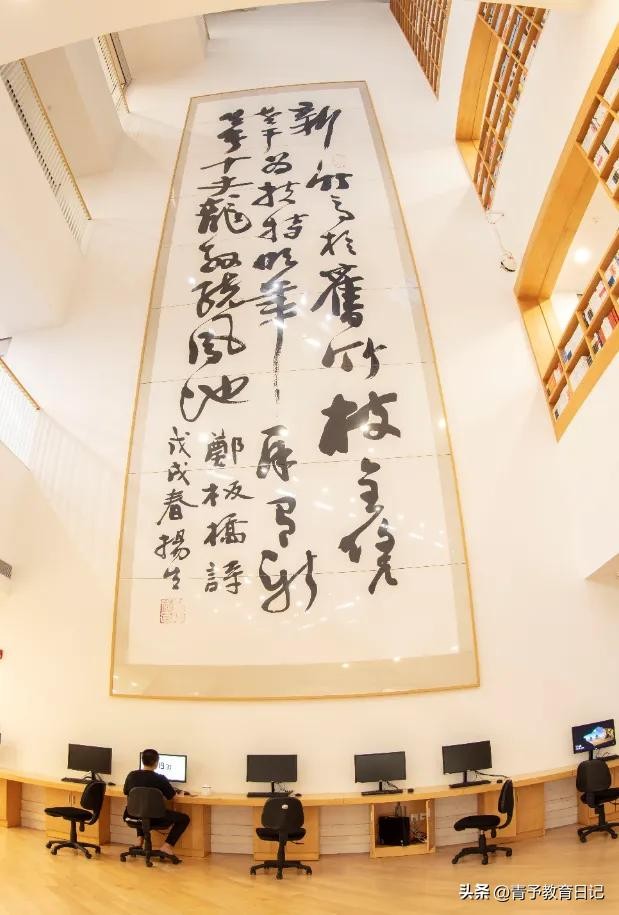 新竹高於舊竹枝全凭
老干为扶持明年再有新
生者十丈龍孫繞鳳池
鄭板橋詩
戊戌春揚生
头条 @青予教育日记